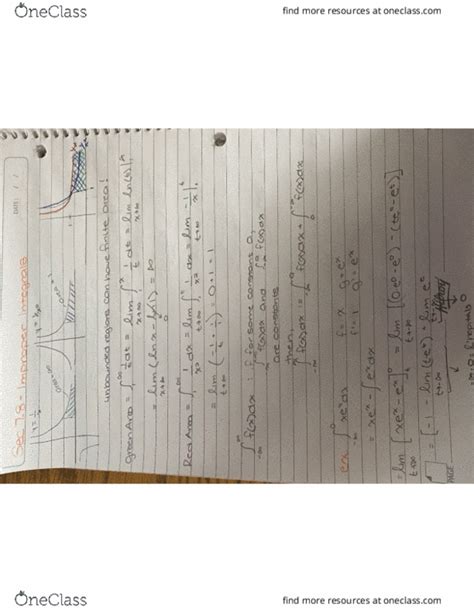 OneClass
find more resources at oneclass.com
DATE: / /
Sec 7.8 - Improper Integrals
unbounded regions can have finite area!
Green Area = ∫₁^∞ 1/t dt = lim x→∞ ∫₁^x 1/t dt = lim x→∞ ln(t)|₁^x
= lim x→∞ (ln x - ln(1)) = ∞
Red Area = ∫₁^∞ 1/x² dx = lim t→∞ ∫₁^t 1/x² dx = lim t→∞ -1/x |₁^t
= lim t→∞ (-1/t + 1/1) = 0 + 1 = 1
∫ f(x)dx : if for some constant a,
∫ f(x)dx and ∫ f(x)dx
are constants
then,
∫ f(x)dx = ∫ f(x)dx + ∫ f(x)dx
ex ∫ xeˣ dx f = x g' = eˣ
f' = 1 g = eˣ
= xeˣ - ∫ eˣ dx
= lim [xeˣ - eˣ] = lim [(0·e⁰ - e⁰) - (teᵗ - eᵗ)]
= [-1 - lim (teᵗ) + lim eᵗ
PAGE
OneClass
find more resources at oneclass.com